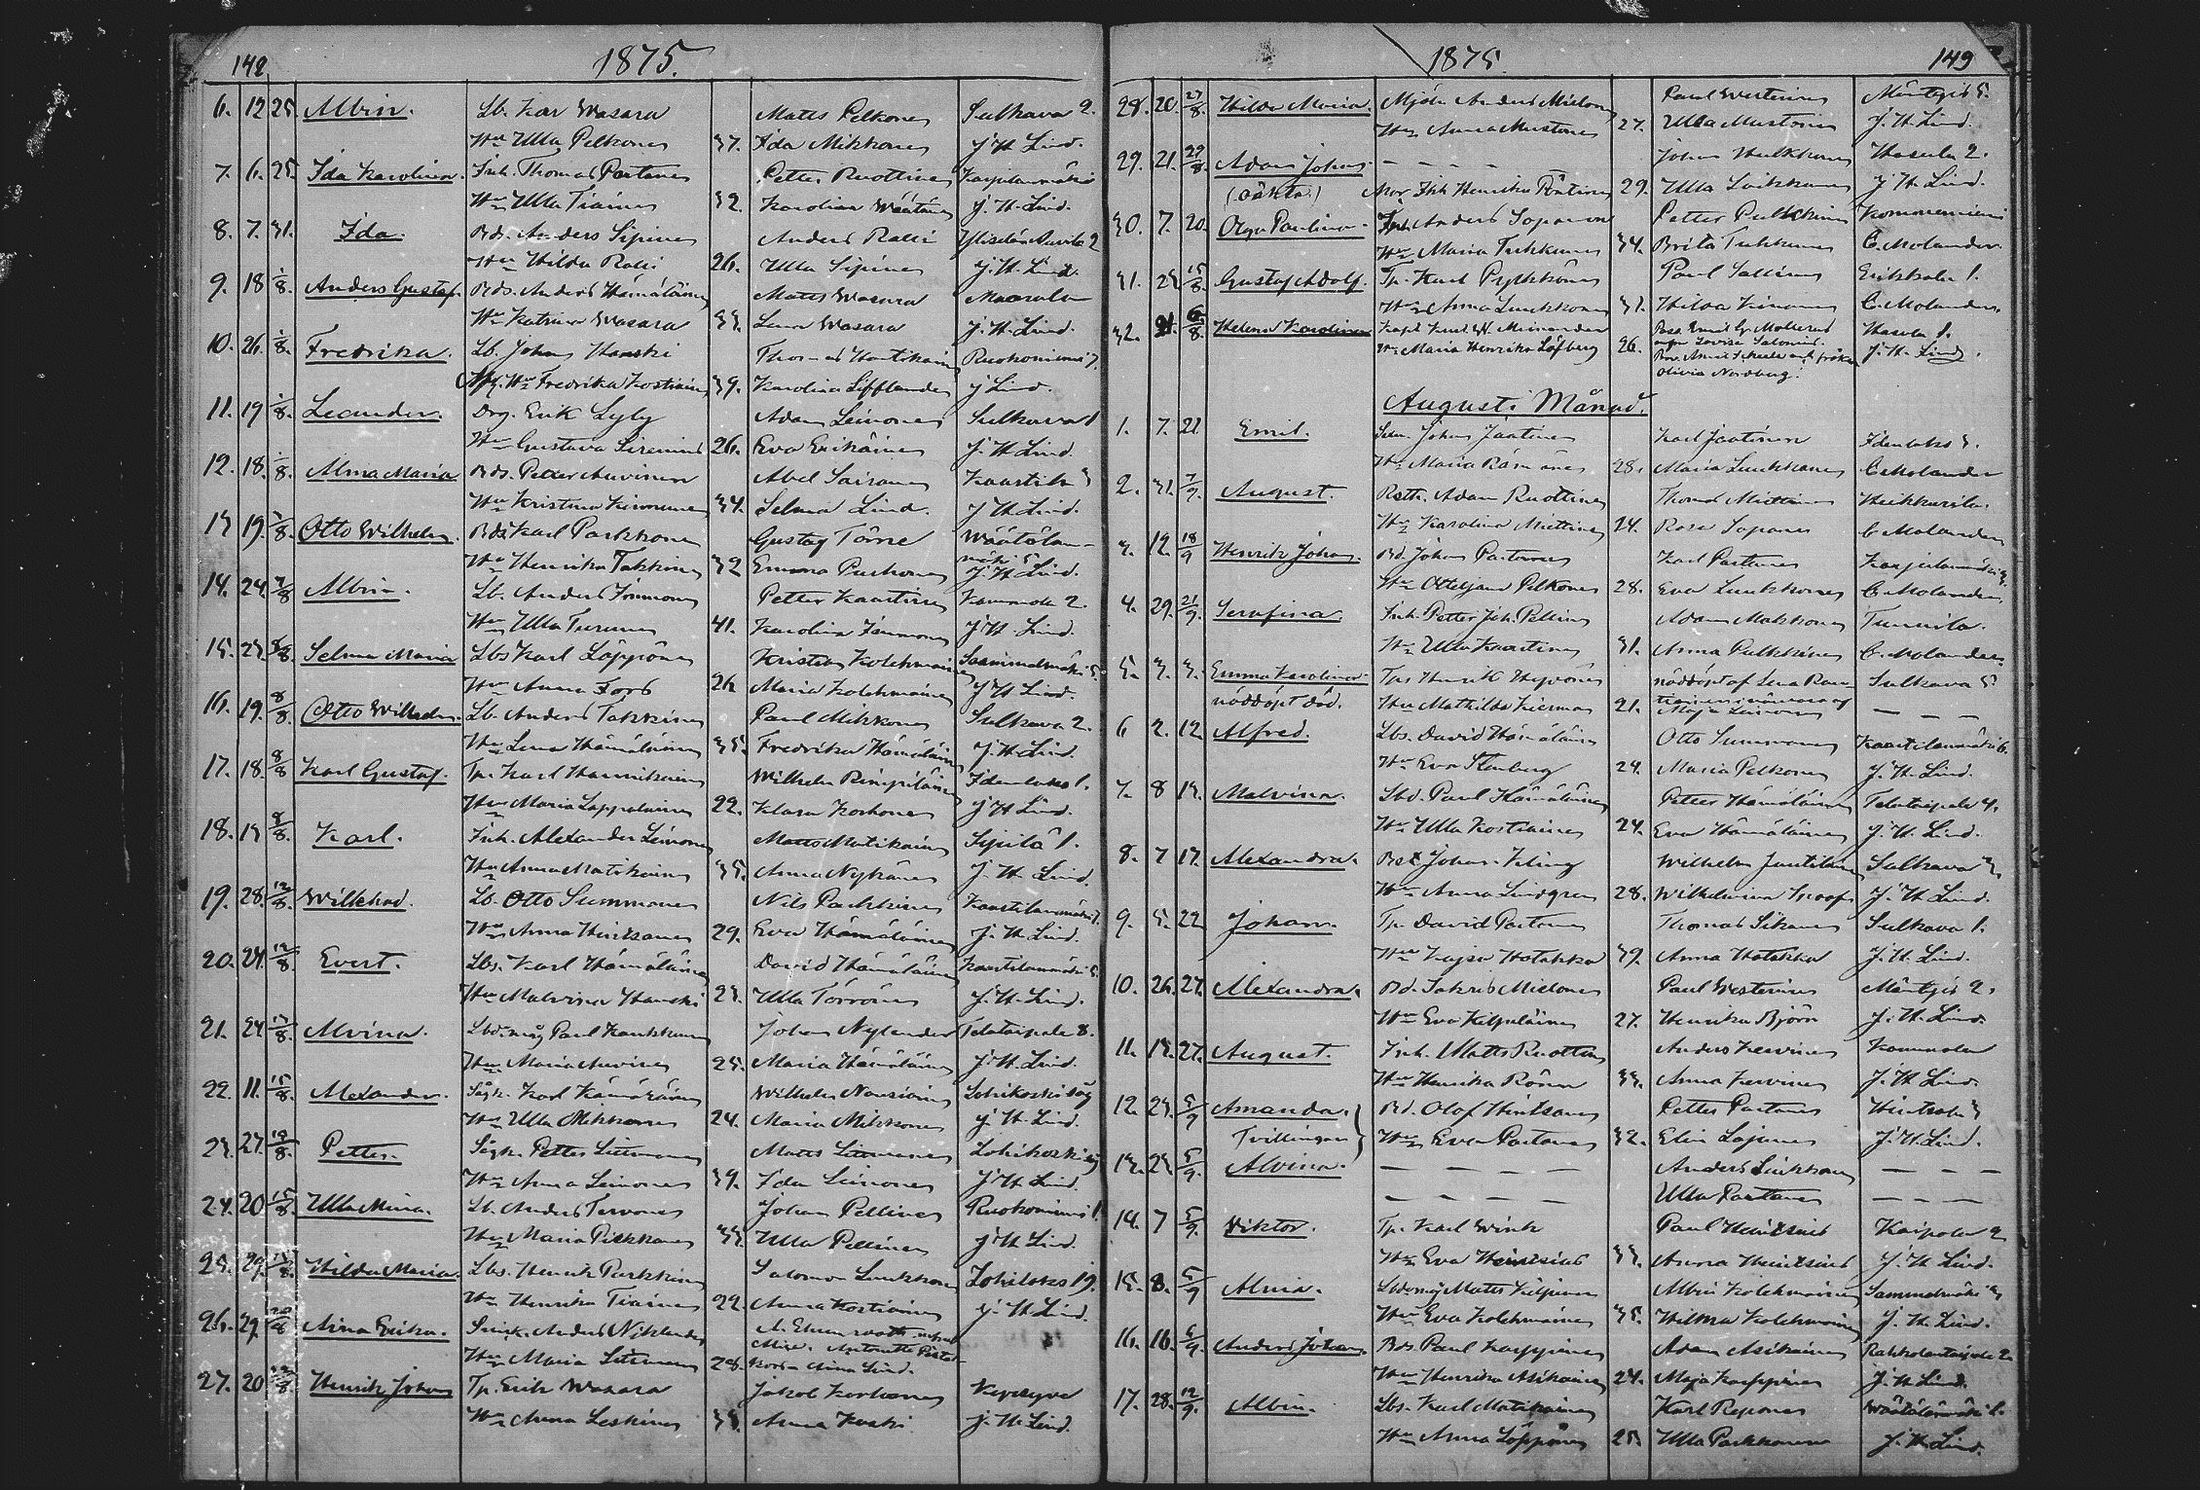 142
1875.
6. 12 25 Albin. Lb. Kar Wasara Matts Pelkonen Sulkava 2.
Hu Ulla Pelkonen 37. Ida Mikkonen J. H. Lind.
7. 6. 25. Ida Karolina. Inh. Thomas Partanen Petter Ruottinen Karjulanmäki
Hu Ulla Tiainen 32. Karolina Väätänen J. H. Lind.
8. 7. 31. Ida. Bds. Anders Sipinen Anders Ralli 2
Hu Hilda Ralli 26. Ulla Sipinen J. H. Lind.
9. 18 1/8. Anders Gustaf. Bds. Anders Hämäläinen Matts Wasara
Hu Katrina Wasara 33. Lena Wasara J. H. Lind.
10. 26. 1/8. Fredrika. Lb. Johan Hanski Thomas Hartikain Ruokoniemi 7.
Hu Fredrika Kostiainen 39. Karolina Lifflander J Lind.
11. 19 1/8. Leander. Drg. Erik Lyly Adam Leinonen Sulkava 1
Hu Gustava Sirenius 26. Eva Eerikäinen J. H. Lind.
12. 18. 1/8. Alma Maria Bds. Petter Auvinen Abel Sairanen Kaartila 3
Hu Kristina Kinnunen 34. Selma Lind. J H Lind.
13 19. 1/8. Otto Wilhelm. Bds Karl Parkkonen Gustaf Törne Väätälän-
mäki 5.
Hu Henrika Takkinen 32 Emma Purhonen J. H Lind.
14. 24. 7/8 Albin. Lb. Anders Immonen Petter Kaartinen Kammola 2.
Hu Ulla Turunen 41. Karolina Immonen J H Lind.
15. 23. 8/8 Selma Maria Lbs Karl Löppönen Kristian Kolehmainen Sammalmäki 5.
Hu Anna Fors 26 Maria Kolehmainen J H Lind.
16. 19. 8/8. Otto Wilhelm. Lb. Anders Takkinen Paul Mikkonen Sulkava 2.
Hu Lena Hämäläinen 35. Fredrika Hämäläinen J. H. Lind.
17. 18. 8/8 Karl Gustaf. Tp. Karl Hannikainen Wilhelm Idenlaks 1.
Hu Maria Lappalainen 22. Klara Korhonen J H Lind.
18. 13 8/8. Karl. Inh. Alexander Leinonen Matts Matikainen Sipilä 1.
Hu Anna Matikainen 35. Anna Nykänen J. H Lind.
19. 28. 12/8. Willehad. Lb. Otto Summanen Nils Parkkinen Kaartilanmäki 7.
Hu Anna Hintsanen 29. Eva Hämäläinen J. H. Lind.
20. 24. 12/8. Evert. Lbs. Karl Hämäläinen David Hämäläinen Kaartilanmäki 5.
Hu Malvina Hanski 23. Ulla Törrönen J. H. Lind.
21. 24. 13/8. Alvina. Lbds måg Paul Kankkunen Johan Nylander Telataipale 8.
Hu Maria Auvinen 25. Maria Hämäläinen J. H. Lind.
22. 11. 15/8. Alexander. Sågk. Karl Kämäräinen Wilhelm Nousiainen Lohikoski såg
Hu Ulla Mikkonen 24. Maria Mikkonen J. H. Lind.
23. 27. 18/8. Petter. Sågk. Petter Littmanen Matts Littmanen Lohikoski såg
Hu Anna Leinonen 39. Ida Leinonen J H Lind.
24. 20 15/8. Ulla Miina. Lb. Anders Tarvonen Johan Pellinen Ruokoniemi 1.
Hu Maria Pirkkanen 33. Ulla Pellinen J H Lind.
25. 29. 15/8. Hilda Maria. Lbs. Henrik Parkkinen Salomon Luukkonen Lohilaks 19.
Hu Henrika Tiainen 22. Anna Kostiainen J. H Lind.
26. 29. 20/8 Aina Erika. Anders Niklander
Hu Maria Littmanen 28. Aina Lind.
27. 20 22/8 Henrik Johan Tp. Erik Wasara Jakob Korhonen
Hu Anna Leskinen 38. Anna Koski. J. H. Lind.
1875
143
28. 20. 27/8. Hilda Maria. Mjöln Anders Mielonen Paul Westerinen Mäntyis 5.
Hu Anna Mustonen 27. Ulla Mustonen J. H. Lind.
29. 21. 29/8. Adam Johan. – – – – Johan Hulkkonen Hasula 2.
(oäkta.) Mor Inh Henrika Röntinen 29. Ulla Loikkanen J H Lind.
30. 7. 20. Olga Paulina. Anders Soponen Petter Pulkkinen
Hu Maria Tukkinen 34. Brita Tukkunen C. Molander.
31. 23 15/8. Gustaf Adolf. Tp. Karl Pylkkönen Paul Sallinen Erikkala 1.
Hu Anna Luukkonen 31. Hilda Kinanen C. Molander.
32. 21. 6/8. Helena Karolina Kapt. Knut W. Meinander Hasula 1.
Hu Maria Henrika Löfberg 26. J. H. Lind.
Olivia Nordberg.
Augusti Månad.
1. 7. 21 Emil. Johan Jaatinen Karl Jaatinen Idenlaks 3.
Hu Maria Räsänen 28. Maria Luukkonen C Molander
2. 31. 7/9. August. Rotk. Adam Ruottinen Thomas Miettinen Heikkurila.
Hu Karolina Miettinen 24. Rosa Soponen C Molander
3. 12. 18/9 Henrik Johan. Bd. Johan Partanen Karl Partanen Karjulanmäki 3.
Hu Ottiljana Pelkonen 28. Eva Luukkonen C. Molander.
4. 29. 21/9. Serafina. Inh. Petter Joh. Pellinen Adam Makkonen Tunnila.
Hu Ulla Kaartinen 31. Anna Pulkkinen C. Molander.
5. 3. 3. Emma Karolina. Tps Henrik Heyvönen nöddöpt af Lena Rau- Sulkava 5.
nöddöpt död. Hu Mathilda Kierman 21. – – –
6 2. 12 Alfred. Lbs. David Hämäläinen Otto Summanen Kaartilanmäki 6.
Hu Eva Stenberg 24. Maria Pelkonen J. H. Lind.
7. 8 13. Malvina. Lbd. Paul Hämäläinen Petter Hämäläinen Telataipale 4.
Hu Ulla Kostiainen 24. Eva Hämäläinen J. H. Lind.
8. 7 17. Alexandra. Johan Viling Wilhelm Jantilainen Sulkava 3.
Hu Anna Lindgren 28. Wilhelmina J. H Lind.
9. 5. 22 Johan. Tp. David Partanen Thomas Sikanen Sulkava 1.
Hu Kajsa Hotakka 39. Anna Hotakka J. H. Lind.
10. 26. 27. Alexandra. Bd. Sakris Mielonen Paul Westerinen Mäntyis 2.
Hu Eva Kilpeläinen 27. Henrika Björn J. H. Lind.
11. 13. 27. August. Inh. Matts Ruottinen Anders Kervinen Kammola
Hu Henrika Rönn 33. Anna Kervinen J. H. Lind.
12. 23. 5/9 Amanda. Bd. Olof Hintsanen Petter Partanen Hintsala 3
Tvillingar Hu Eva Partanen 32. Elin Lajunen J. H. Lind.
13. 23. 5/9. Alvina. – – – – – Anders Luukkonen – – –
– – – – – Ulla Partanen – – –
14. 7 5/9. Viktor. Tp. Karl Wink Paul Heintsius Kaipola 2
Hu Eva Heintsius 33. Anna Heintsius J. H Lind.
15. 8. 5/9 Almia. Lbdsmåg Matts Kilpinen Albin Kolehmainen Sammalmäki 3
Hu Eva Kolehmainen 35. Hilma Kolehmainen J. H. Lind.
16. 16. 5/9. Anders Johan. Bds. Paul Kaippinen Adam Asikainen Rahkolantaipale 2.
Hu Henrika Asikainen 24. Maja Kaippinen J. H Lind.
17. 28. 12/9. Albin. Lbs. Karl Matikainen Karl Reponen Väätälänmäki 1.
Hu Anna Löppönen 25 Ulla Parkkonen J. H Lind.